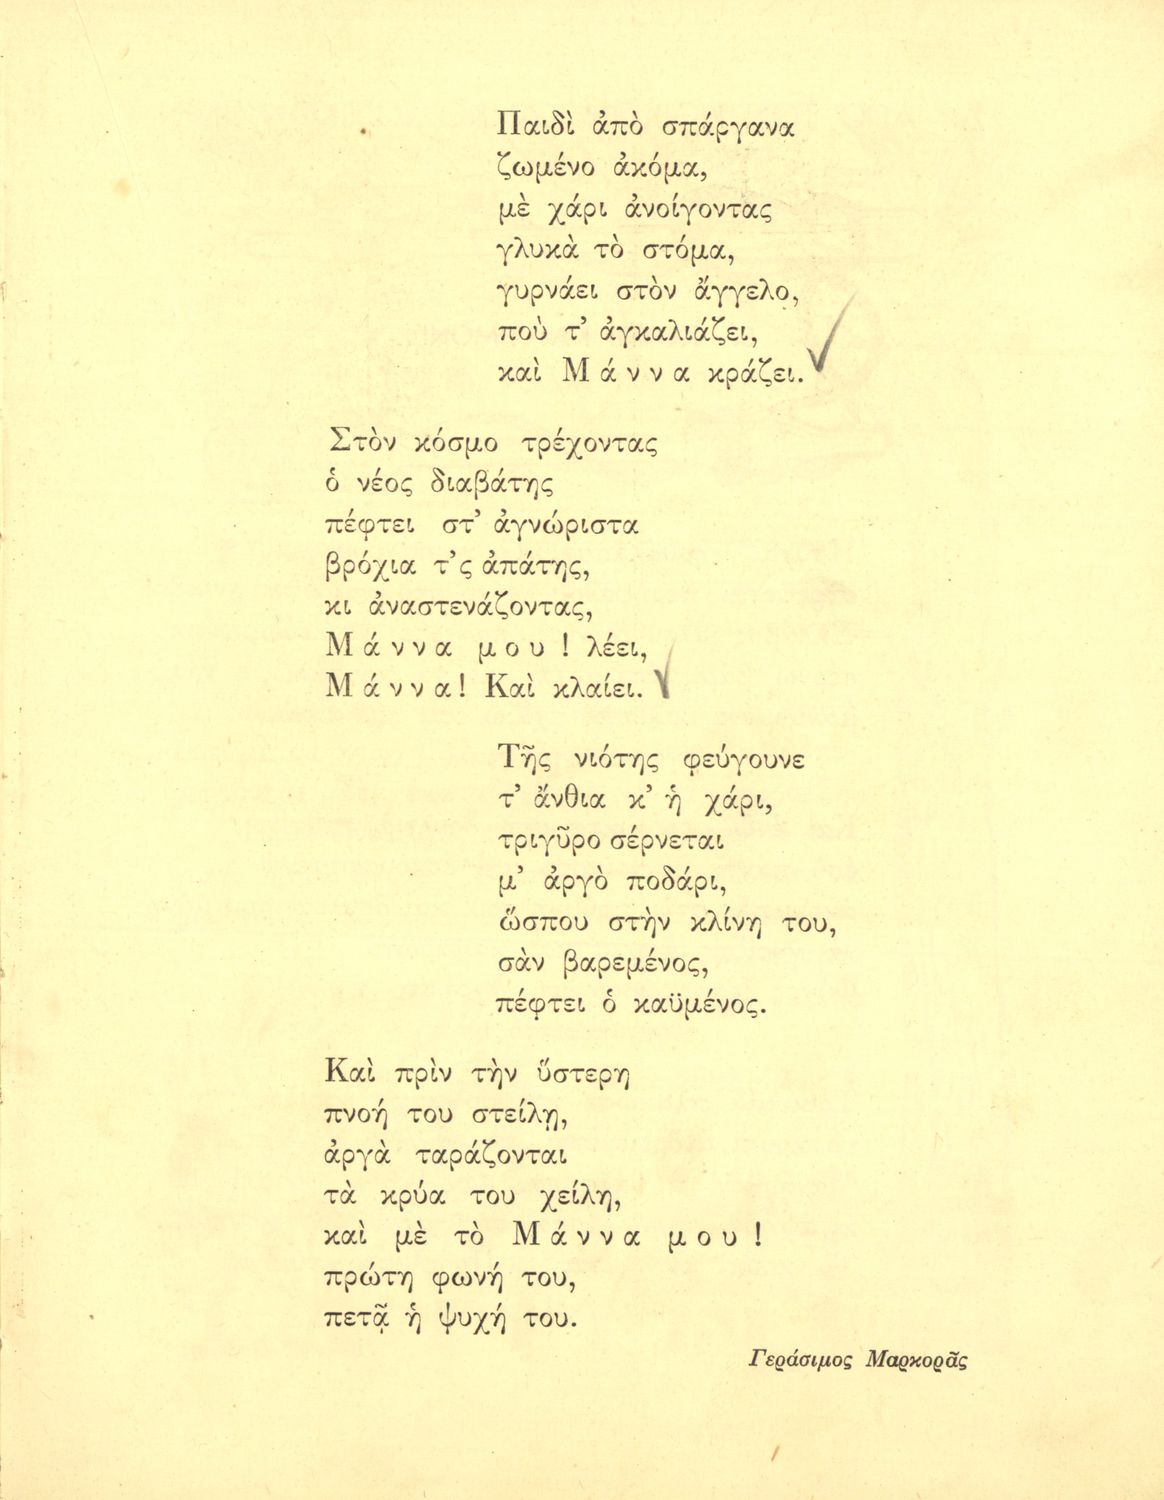 Παιδὶ ἀπὸ σπάργανα
ζωμένο ἀκόμα,
μὲ χάρι ἀνοίγοντας
γλυκὰ τὸ στόμα,
γυρνάει στὸν ἄγγελο,
ποὺ τ' ἀγκαλιάζει,
καὶ Μάννα κράζει.
Στὸν κόσμο τρέχοντας
ὁ νέος διαβάτης
πέφτει στ' ἀγνώριστα
βρόχια τ'ς ἀπάτης,
κι ἀναστενάζοντας,
Μάννα μου! λέει,
Μάννα! Καὶ κλαίει.
Τῆς νιότης φεύγουνε
τ' ἄνθια κ' ἡ χάρι,
τριγῦρο σέρνεται
μ' ἀργὸ ποδάρι,
ὥσπου στὴν κλίνη του,
σὰν βαρεμένος,
πέφτει ὁ καϋμένος.
Καὶ πρὶν τὴν ὕστερη
πνοή του στείλῃ,
ἀργὰ ταράζονται
τὰ κρύα του χείλη,
καὶ μὲ τὸ Μάννα μου!
πρώτη φωνή του,
πετᾷ ἡ ψυχή του.
Γεράσιμος Μαρκορᾶς